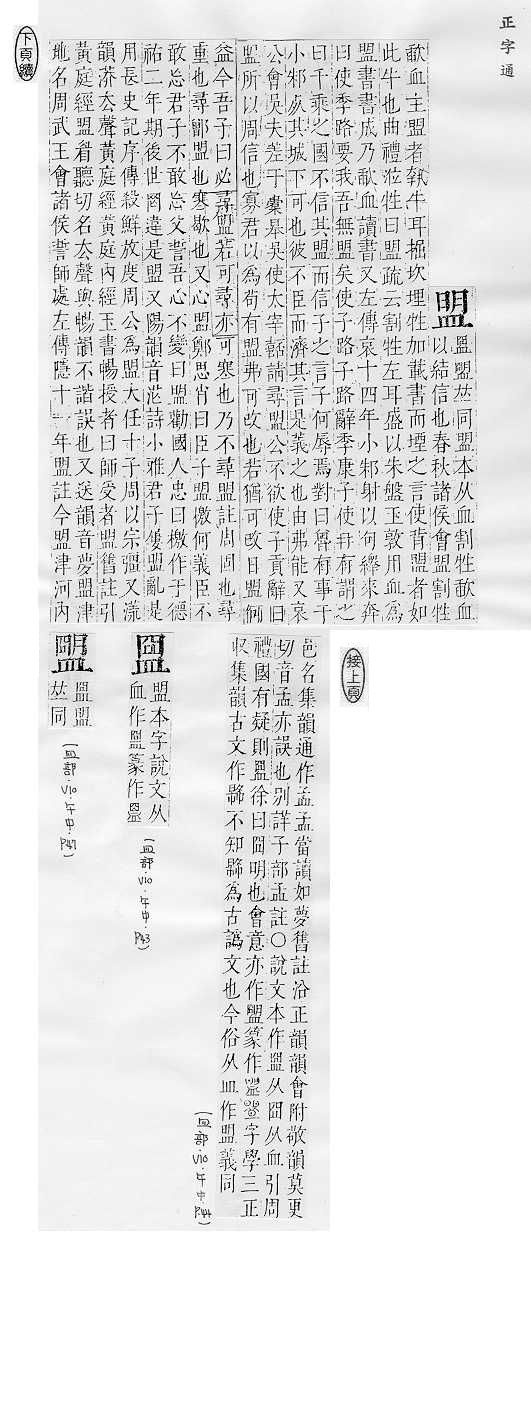 正字通
盟
𥁰盟𠀤同盟本从血割牲歃血
以結信也春秋諸侯會盟割牲
歃血主盟者執牛耳掘坎埋牲加載書而堙之言使背盟者如
此牛也曲禮涖牲曰盟疏云割牲左耳盛以朱盤玉敦用血爲
盟書書成乃歃血讀書又左傳哀十四年小邾射以句繹來奔
曰使季路要我吾無盟矣使子路子路辭季康子使冉有謂之
曰千乘之國不信其盟而信子之言子何辱焉對曰魯有事于
小邾死其城下可也彼不臣而濟其言是義之也由弗能又哀
公會吳夫差于橐皋吳使太宰嚭請尋盟公不欲使子貢辭曰
盟所以周信也寡君以爲苟有盟弗可改也若猶可改日盟何
益今吾子曰必尋盟若可尋亦可寒也乃不尋盟註周固也尋
重也尋鄫盟也寒歇也又心盟鄭思肖曰臣子盟檄何義臣不
敢忘君子不敢忘父誓吾心不變曰盟勸國人忠曰檄作于德
祐二年期後世罔違是盟又陽韻音茫詩小雅君子屢盟亂是
用長史記序傳殺鮮放度周公爲盟大任十子周以宗彊又漾
韻漭去聲黃庭經黃庭內經玉書暢授者曰師受者盟舊註引
黃庭經盟眷聽切名去聲與暢韻不諧誤也又送韻音夢盟津
地名周武王會諸侯誓師處左傳隱十一年盟註今盟津河內
下頁續
接上頁
邑名集韻通作孟孟當讀如夢舊註沿正韻韻會附敬韻莫更
切音孟亦誤也別詳子部孟註〇說文本作盟从囧从血引周
禮國有疑則盟徐曰囧明也會意亦作盟篆作字學三正
収集韻古文作不知爲古譌文也今俗从皿作盟義同
(皿部.V10.午中.P44)
盟本字說文从
血作盟篆作
(皿部.V10.午中.P43)
𠀤同
(皿部.V10.午中.P47)